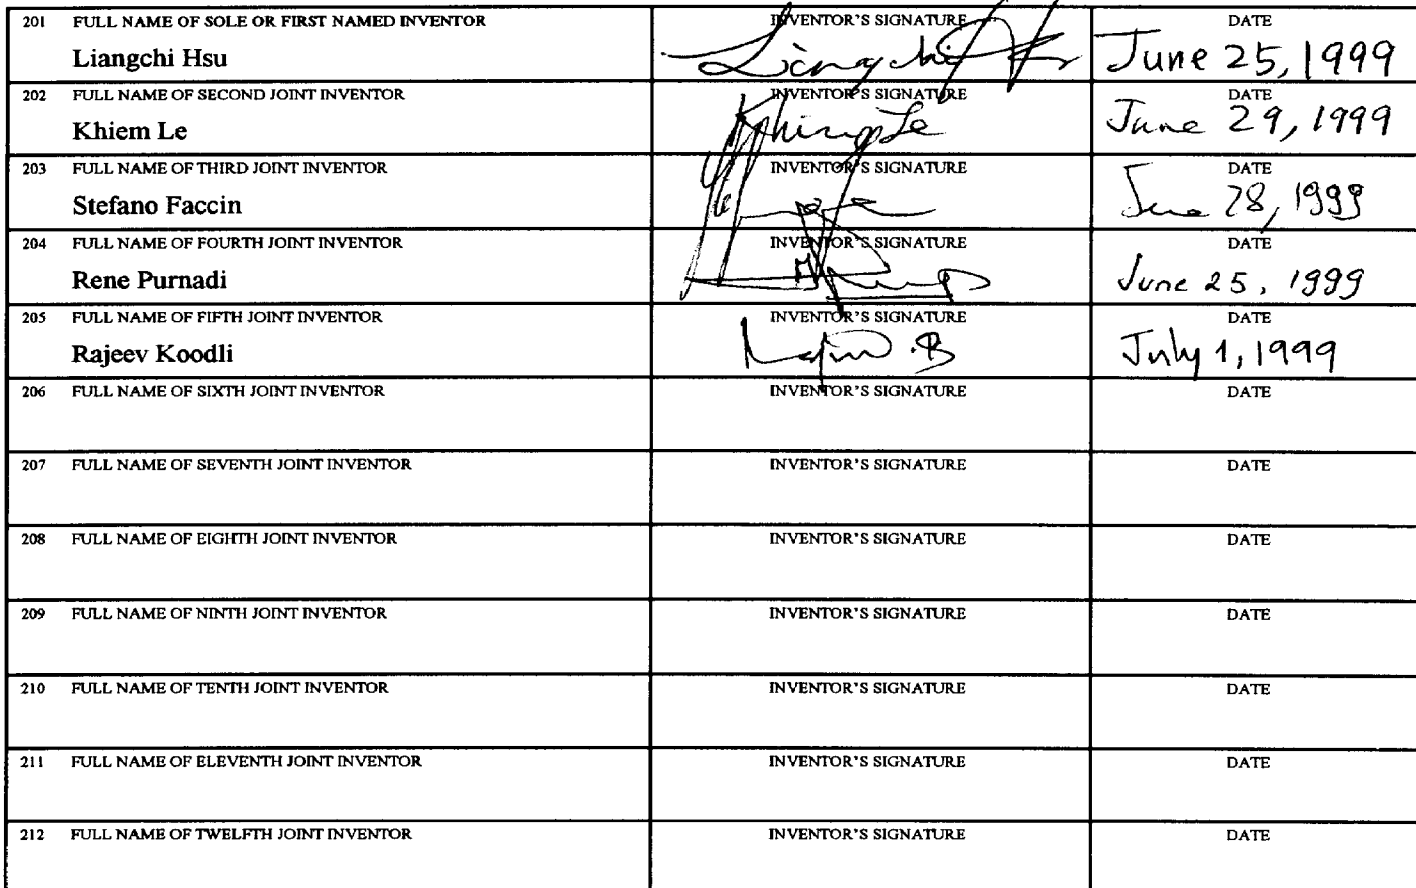 201 FULL NAME OF SOLE OR FIRST NAMED INVENTOR INVENTOR'S SIGNATURE DATE
Liangchi Hsu Liangchi Hsu June 25, 1999
202 FULL NAME OF SECOND JOINT INVENTOR INVENTOR'S SIGNATURE DATE
Khiem Le Khiem Le June 29, 1999
203 FULL NAME OF THIRD JOINT INVENTOR INVENTOR'S SIGNATURE DATE
Stefano Faccin June 28, 1999
204 FULL NAME OF FOURTH JOINT INVENTOR INVENTOR'S SIGNATURE DATE
Rene Purnadi June 25, 1999
205 FULL NAME OF FIFTH JOINT INVENTOR INVENTOR'S SIGNATURE DATE
Rajeev Koodli July 1, 1999
206 FULL NAME OF SIXTH JOINT INVENTOR INVENTOR'S SIGNATURE DATE
207 FULL NAME OF SEVENTH JOINT INVENTOR INVENTOR'S SIGNATURE DATE
208 FULL NAME OF EIGHTH JOINT INVENTOR INVENTOR'S SIGNATURE DATE
209 FULL NAME OF NINTH JOINT INVENTOR INVENTOR'S SIGNATURE DATE
210 FULL NAME OF TENTH JOINT INVENTOR INVENTOR'S SIGNATURE DATE
211 FULL NAME OF ELEVENTH JOINT INVENTOR INVENTOR'S SIGNATURE DATE
212 FULL NAME OF TWELFTH JOINT INVENTOR INVENTOR'S SIGNATURE DATE